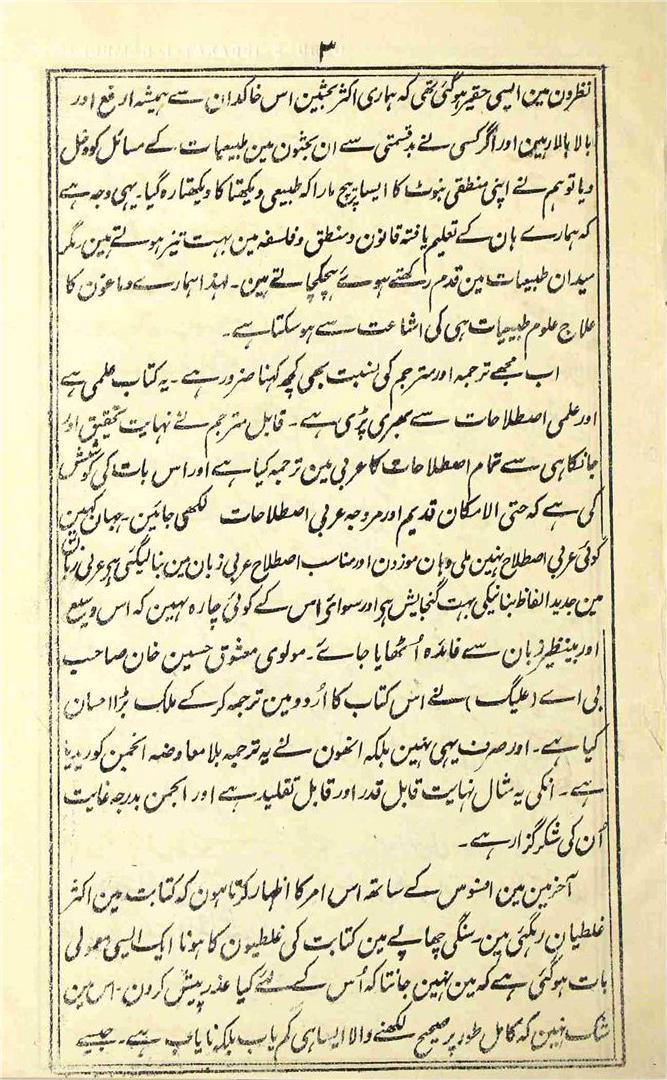 ۳
نظرون مین ایسی حقیر ہوگئی تھی کہ ہماری اکثر بحثین اس خاکدان سے ہمیشہ ارفع اور
بالا بالا رہین اور اگر کسی نے بدقسمتی سے ان بحثون مین طبیعیات کے مسائل کو دخل
دیا تو ہم نے اپنی منطقی بنوٹ کا ایسا پیچ مارا کہ طبیعی دیکھتا کا دیکھتا رہ گیا۔ یہی وجہ ہے
کہ ہمارے ہان کے تعلیم یافتہ قانون و منطق و فلسفہ مین بہت تیز ہوتے ہین مگر
میدان طبیعیات مین قدم رکھتے ہوئے ہچکچاتے ہین۔ لہذا ہمارے دماغون کا
علاج علوم طبیعیات ہی کی اشاعت سے ہوسکتا ہے۔
اب مجھے ترجمہ اور مترجم کی نسبت بھی کچھ کہنا ضرور ہے۔ یہ کتاب علمی ہے
اور علمی اصطلاحات سے بھری پڑی ہے۔ قابل مترجم نے نہایت تحقیق اور
جانکاہی سے تمام اصطلاحات کا عربی مین ترجمہ کیا ہے اور اس بات کی کوشش
کی ہے کہ حتی الامکان قدیم اور مروجہ عربی اصطلاحات لکھی جائین۔ جہان کہین
کوئی عربی اصطلاح نہین ملی وہان موزون اور مناسب اصطلاح عربی زبان مین بنا لیگئی ہے عربی زبان
مین جدید الفاظ بنانیکی بہت گنجایش ہی اور سوائے اس کے کوئی چارہ نہین کہ اس وسیع
اور بینظیر زبان سے فائدہ اُٹھایا جائے۔ مولوی معشوق حسین خان صاحب
بی اے (علیگ) نے اس کتاب کا اُردو مین ترجمہ کرکے ملک بڑا احسان
کیا ہے۔ اور صرف یہی نہین بلکہ انھون نے یہ ترجمہ بلا معاوضہ انجمن کو دیدیا
ہے۔ انکی یہ مثال نہایت قابل قدر اور قابل تقلید ہے اور انجمن بدرجہ غایت
اُن کی شکر گزار ہے۔
آخر مین مین افسوس کے ساتھ اس امر کا اظہار کرتا ہون کہ کتابت مین اکثر
غلطیان رہگئی ہین۔ سنگی چھاپے مین کتابت کی غلطیون کا ہونا ایک ایسی معمولی
بات ہوگئی ہے کہ مین نہین جانتا کہ اُس کے لئے کیا عذر پیش کرون۔ اس مین
شک نہین کہ کامل طور پر صحیح لکھنے والا ایسا ہی کم یاب بلکہ نایاب ہے۔ جیسے